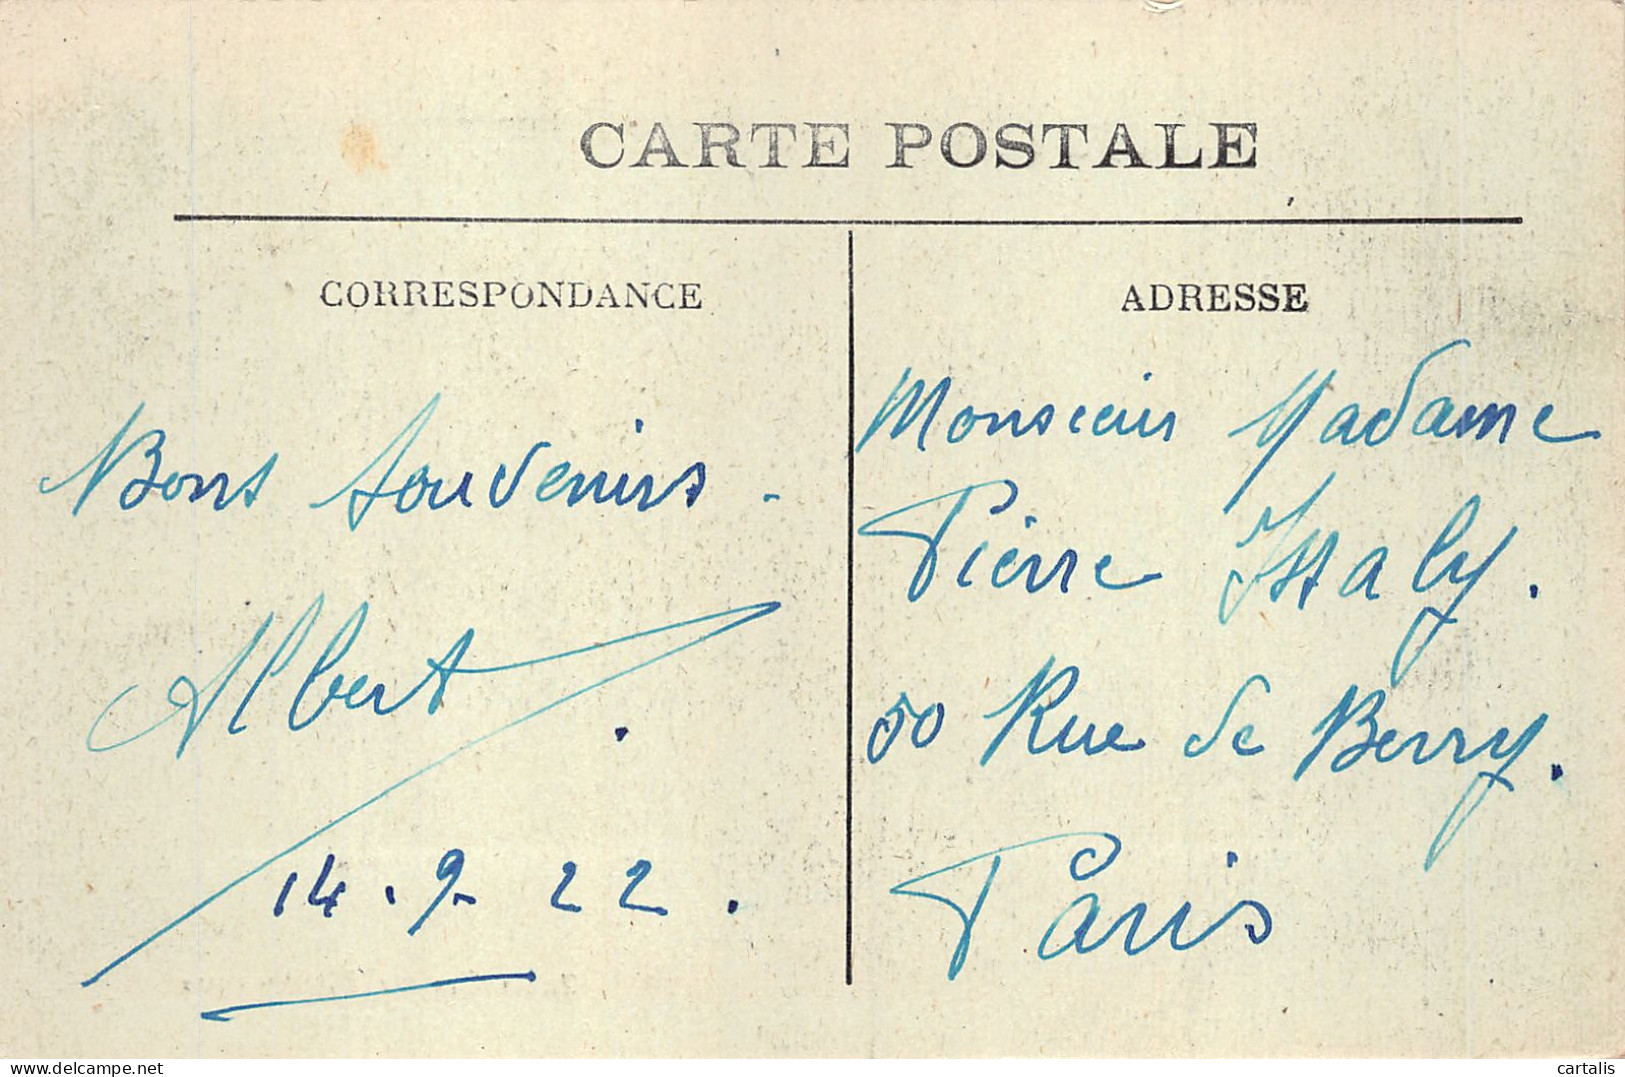 CARTE POSTALE
CORRESPONDANCE
Bons souvenirs -
Albert.
14.9.22.
ADRESSE
Monsieur Madame
Pierre
50 Rue de Berry.
Paris
delcampe.net
cartalis